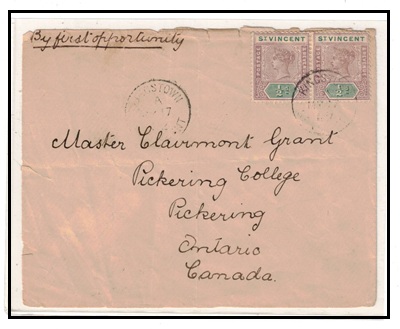 By first opportunity
ST VINCENT ST VINCENT
½d ½d
Master Clairmont Grant
Pickering College
Pickering
Ontario
Canada.